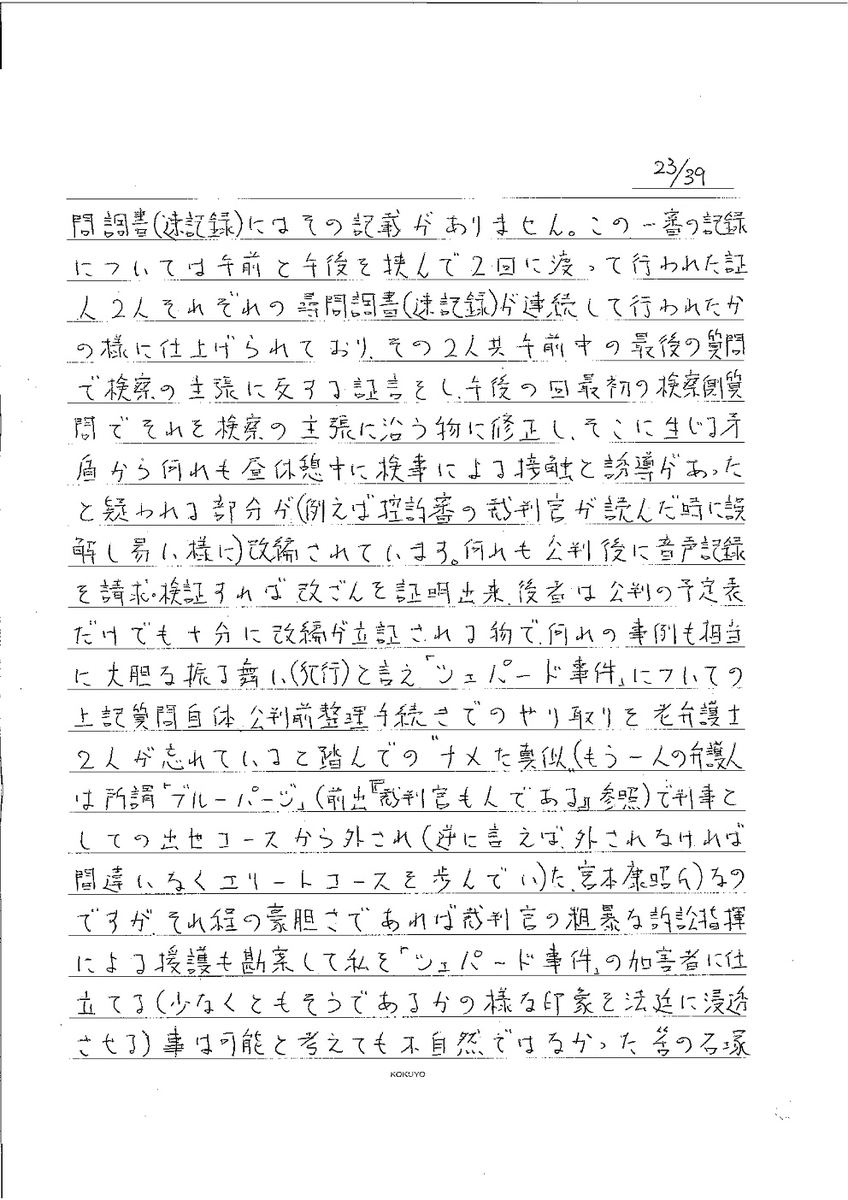 23/39
問調書(速記録)にはその記載がありません。この一審の記録
については午前と午後を挟んで2回に渡って行われた証
人2人それぞれの尋問調書(速記録)が連続して行われたか
の様に仕上げられており、その2人共午前中の最後の質問
で検察の主張に反する証言をし、午後の回最初の検察側質
問でそれを検察の主張に沿う物に修正し、そこに生じる矛
盾から何れも昼休憩中に検事による接触と誘導があった
と疑われる部分が(例えば控訴審の裁判官が読んだ時に誤
解し易い様に)改編されています。何れも公判後に音声記録
を請求・検証すれば改ざんを証明出来、後者は公判の予定表
だけでも十分に改編が立証される物で、何れの事例も相当
に大胆な振る舞い(犯行)と言え「シェパード事件」についての
上記質問自体、公判前整理手続きでのやり取りを老弁護士
2人が忘れていると踏んでの"ナメた真似"(もう一人の弁護人
は所謂「ブルーパージ」(前出『裁判官も人である』参照)で判事と
しての出世コースから外され(逆に言えば、外されなければ
間違いなくエリートコースを歩んでい)た、宮本康昭氏)なの
ですが、それ程の豪胆さであれば裁判官の粗暴な訴訟指揮
による援護も勘案して私を「シェパード事件」の加害者に仕
立てる(少なくともそうであるかの様な印象を法廷に浸透
させる)事は可能と考えても不自然ではなかった筈の石塚
KOKUYO